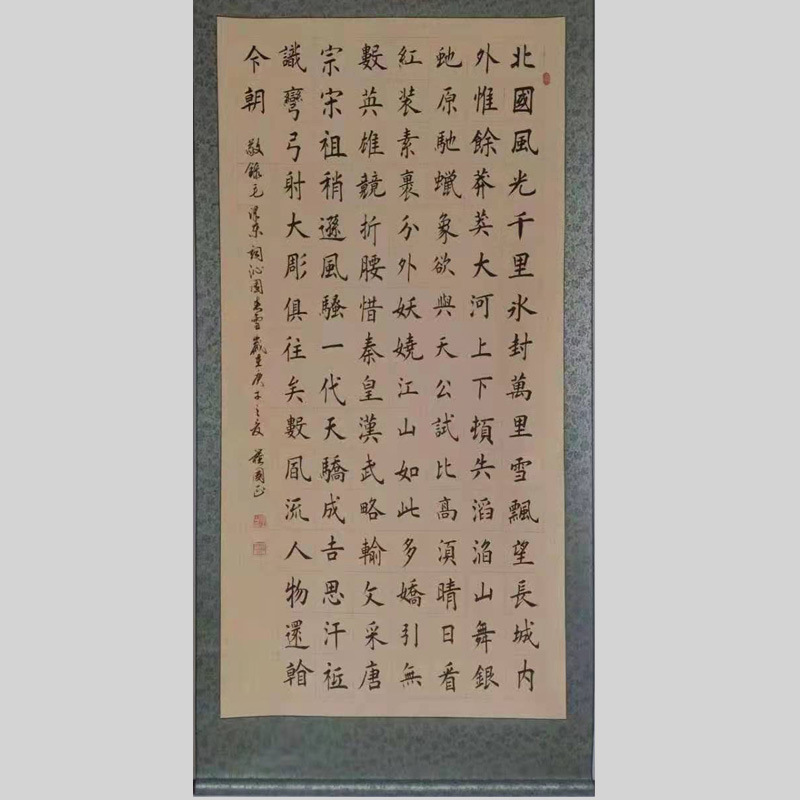 北國風光千里氷封萬里雪飄望長城内
外惟餘莽莽大河上下頓失滔滔山舞銀
虵原馳蠟象欲與天公試比高須晴日看
紅装素裹分外妖嬈江山如此多嬌引無
數英雄競折腰惜秦皇漢武略輸文采唐
宗宋祖稍遜風騷一代天驕成吉思汗祗
識彎弓射大彫俱往矣數風流人物還看
今朝
敬錄毛澤東詞沁園春雪歲在庚子之夏 國正